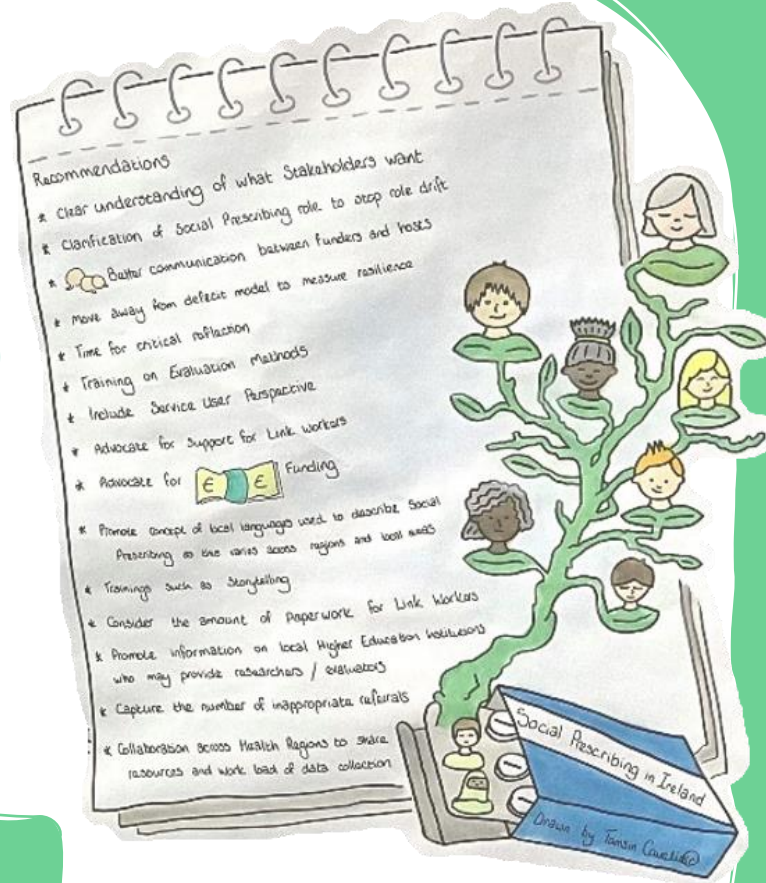 Recommendations
* Clear understanding of what Stakeholders want
* Clarification of Social Prescribing role to stop role drift
* Better communication between Funders and hosts
* Move away from deficit model to measure resilience
* Time for critical reflection
* Training on Evaluation Methods
* Include Service User Perspective
* Advocate for Support for Link Workers
* Advocate for € € Funding
* Promote concept of local languages used to describe Social
Prescribing as this varies across regions and local areas
* Trainings such as Storytelling
* Consider the amount of Paperwork for Link Workers
* Promote information on local Higher Education Institutions
who may provide researchers / evaluators
* Capture the number of inappropriate referrals
* Collaboration across Health Regions to share
resources and work load of data collection
Social Prescribing in Ireland
Drawn by Tamsin